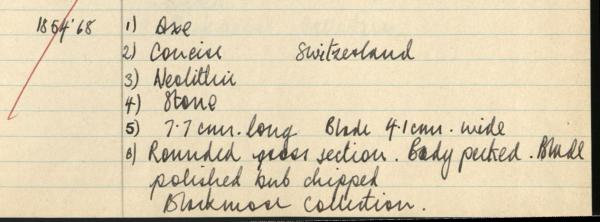 1854'68 1) Axe
2) Concise Switzerland
3) Neolithic
4) Stone
5) 7.7 cms. long Blade 4.1 cms. wide
6) Rounded cross section. Body pecked. Blade
polished but chipped
Blackmore Collection.